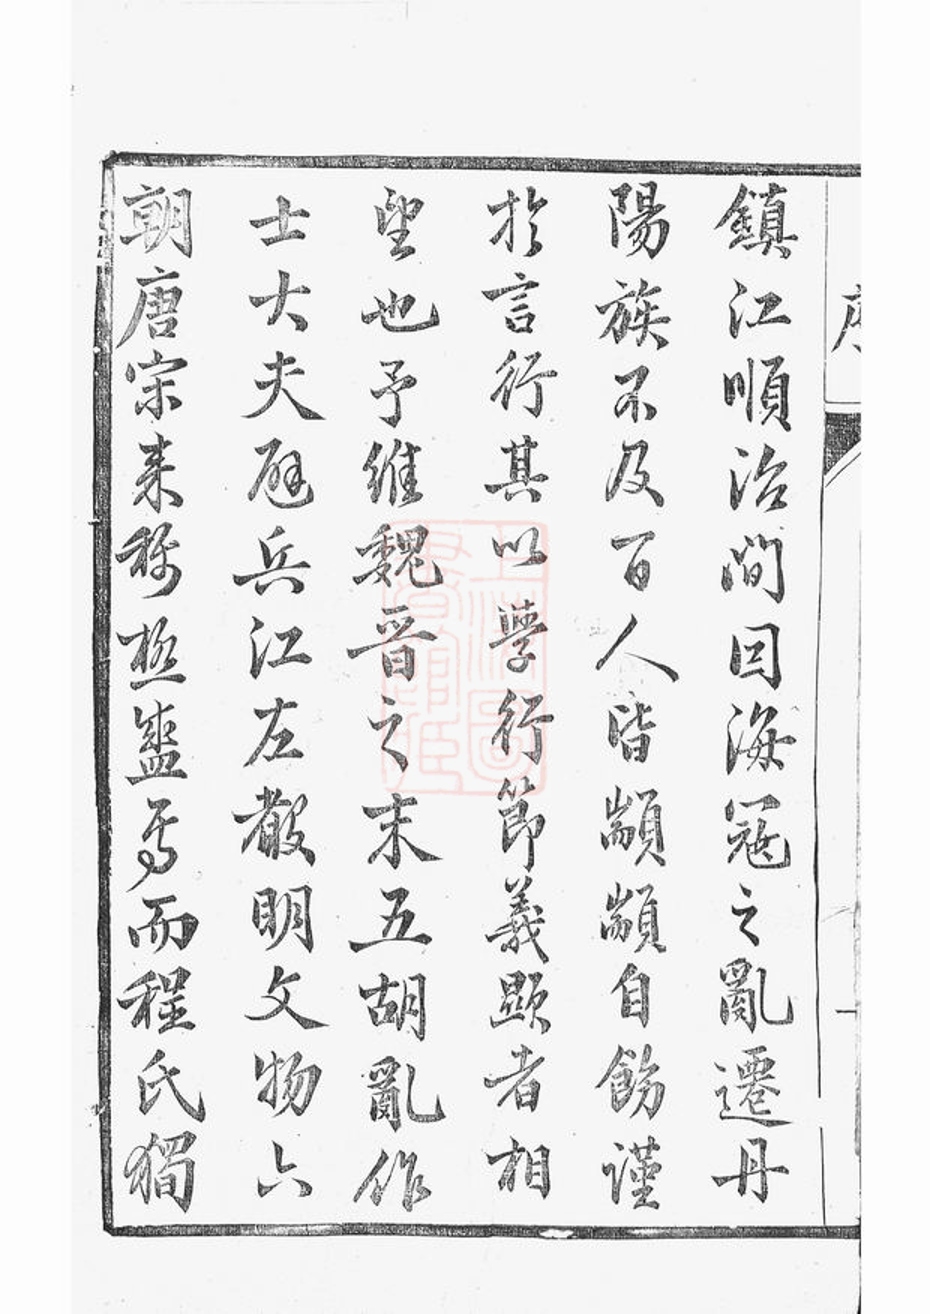 序
鎮江順治間因海寇之亂遷丹
陽族不及百人皆顓顓自飭謹
於言行其以學行節義顯者相
望也予維魏晉之末五胡亂作
士大夫避兵江左聲明文物六
朝唐宋来稱極盛焉而程氏獨
上海圖書館藏